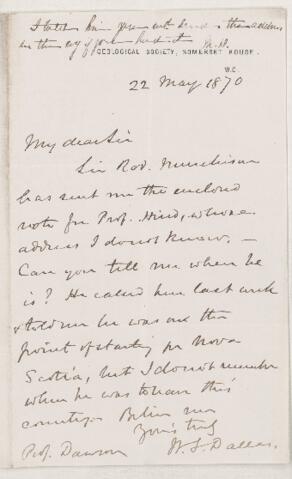 I told him you would send
in the
GEOLOGICAL SOCIETY, SOMERSET HOUSE.
W.C.
22 May 1870
My dear Sir
Sir Rod. Murchison
has sent me the enclosed
note for Prof. Hind, whose
address I do not know. —
Can you tell me where he
is? He called here last week
& told me he was on the
point of starting for Nova
Scotia, but I do not remember
when he was to leave this
country. Believe me
Yours truly
W. S. Dallas.
Prof. Dawson